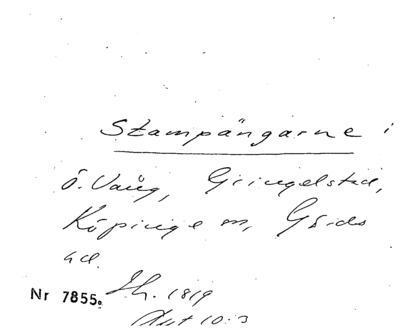 Stampängarne i
Ö. Vång, Gringelstad,
Köpinge m, Gärds
hd.
Nr 7855. Sk. 1819
Akt 10:3